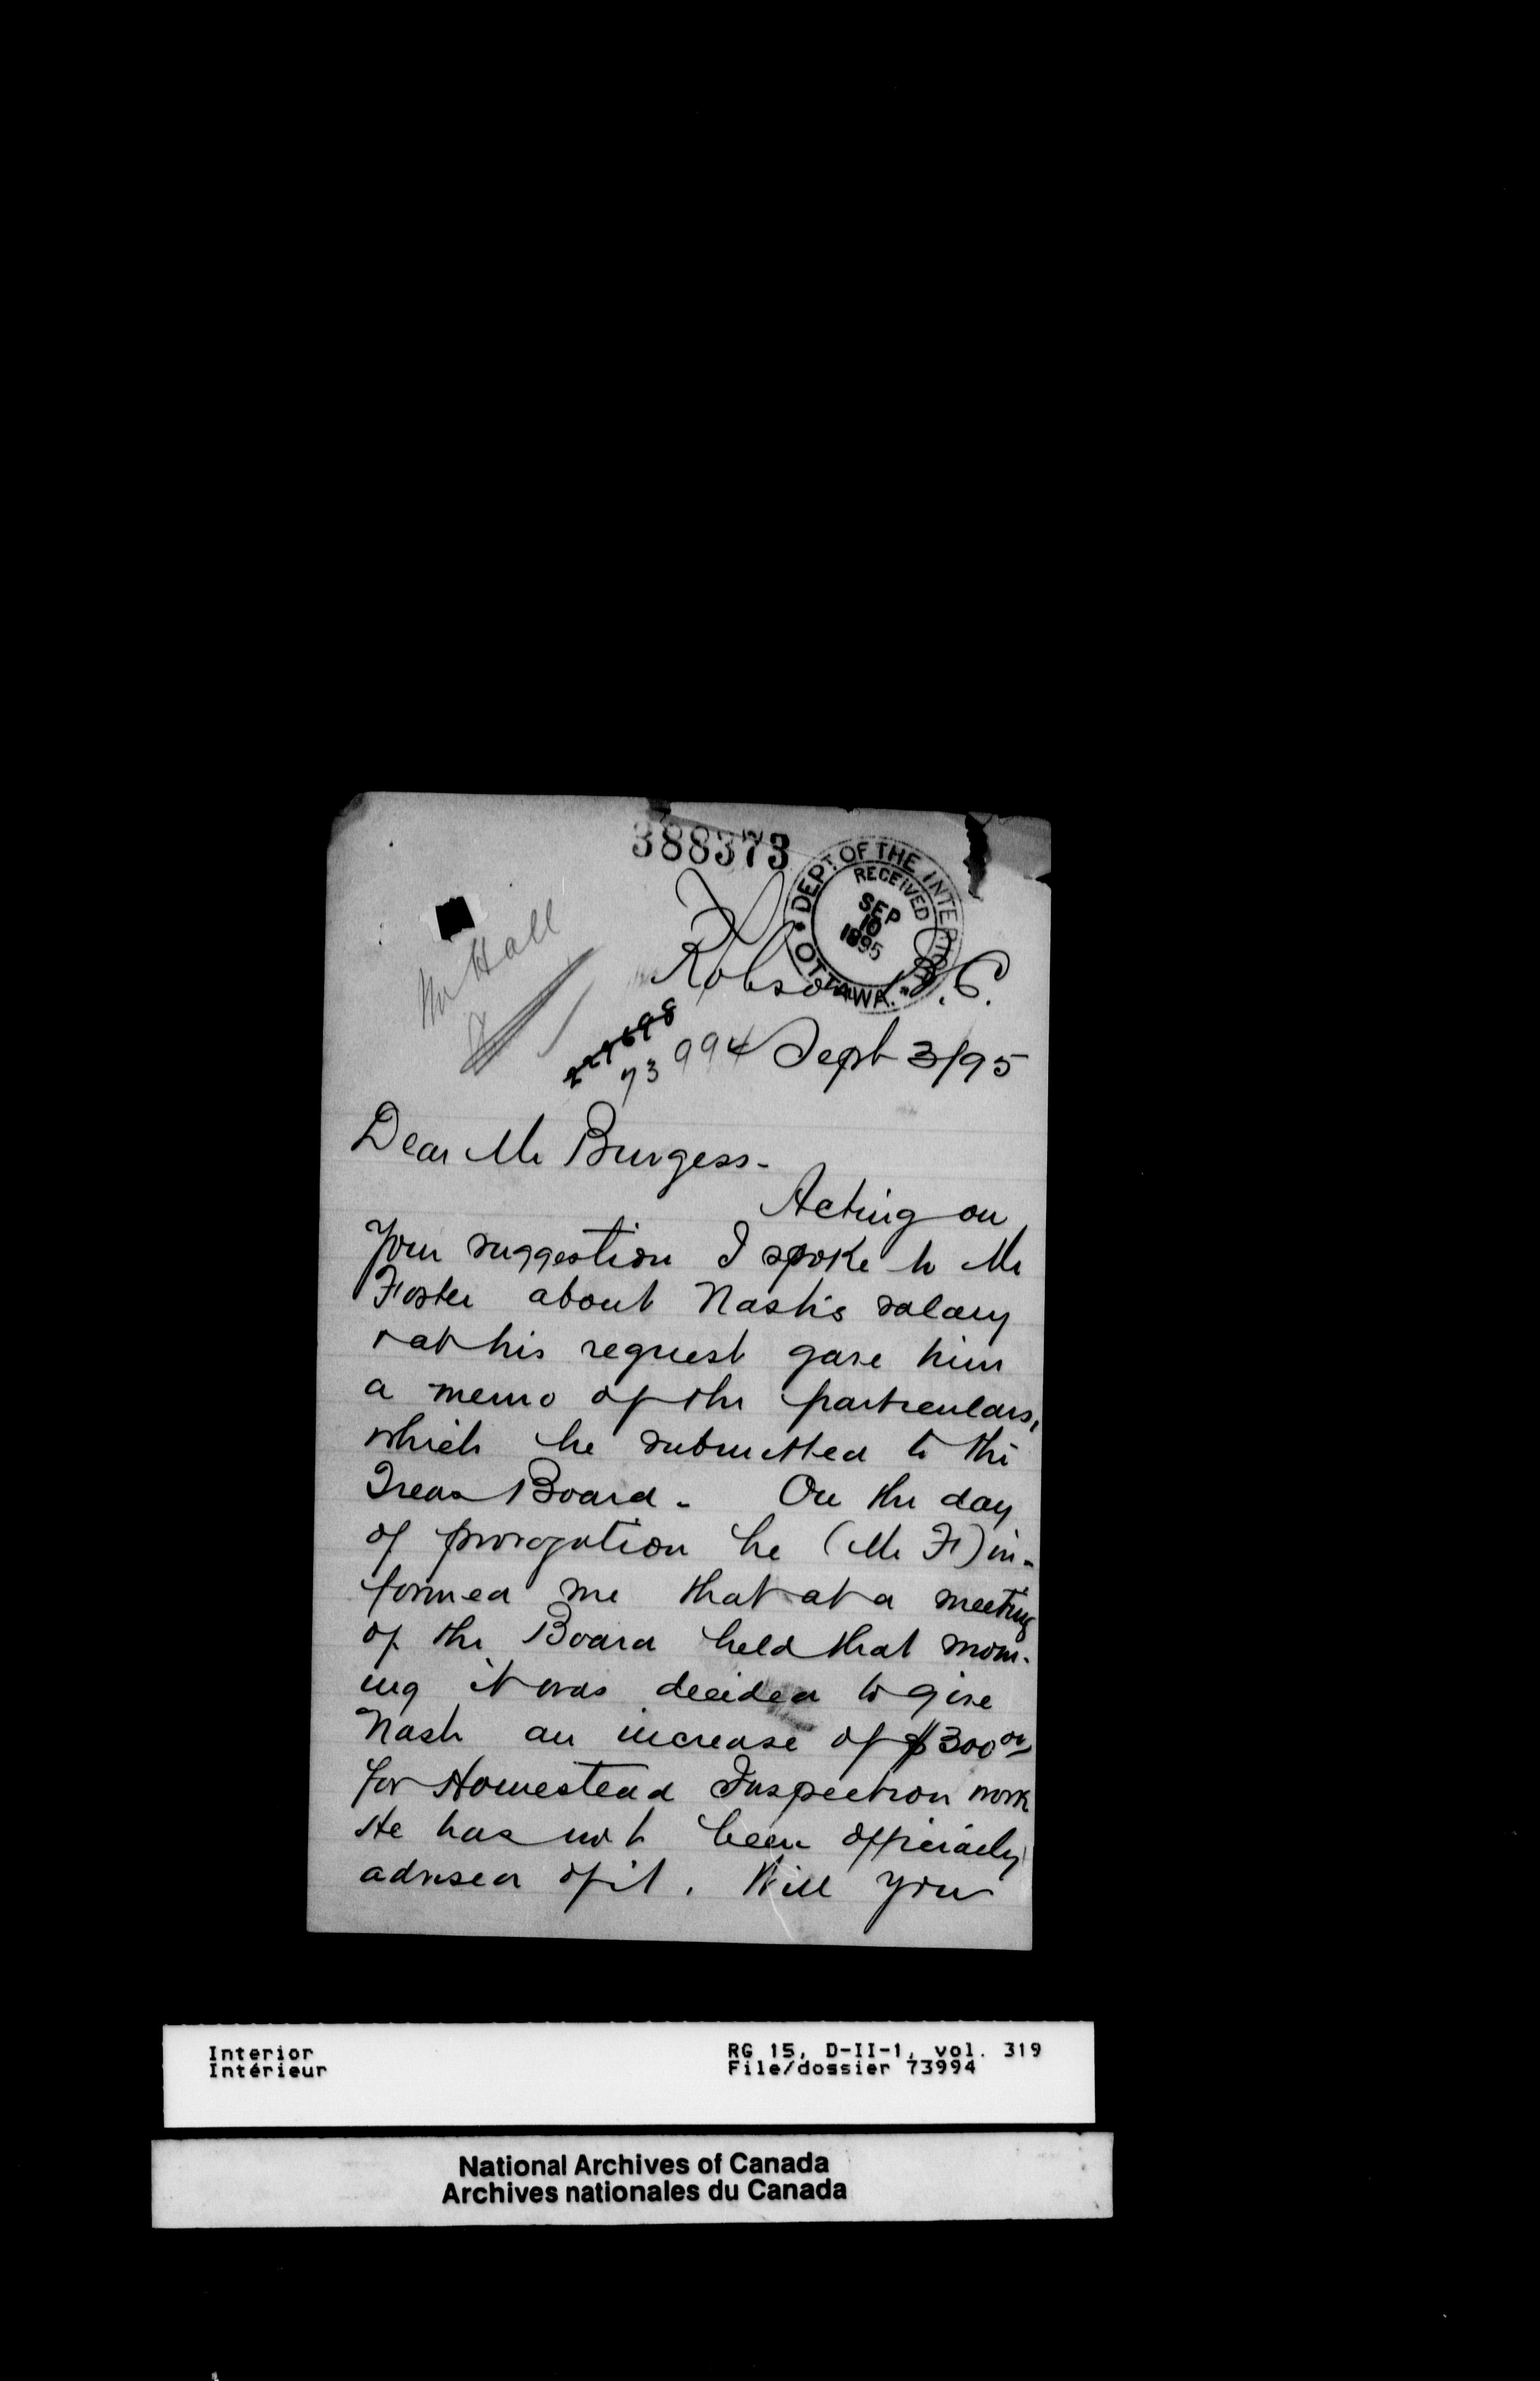 388373
DEPT. OF THE INTERIOR
RECEIVED
SEP
10
1895
OTTAWA.
Mr Hall
Robson B.C.
227698
73994 Sept 3/95
Dear Mr Burgess-
Acting on
your suggestion I spoke to Mr
Foster about Nash's salary
& at his request gave him
a memo of the particulars,
which he submitted to the
Treas Board. On the day
of prorogation he (Mr F) in-
formed me that at a meeting
of the Board held that morn-
ing it was decided to give
Nash an increase of $300 00
for Homestead Inspection work
He has not been officially
advised of it. Will you
Interior
Intérieur
RG 15, D-II-1, vol. 319
File/dossier 73994
National Archives of Canada
Archives nationales du Canada